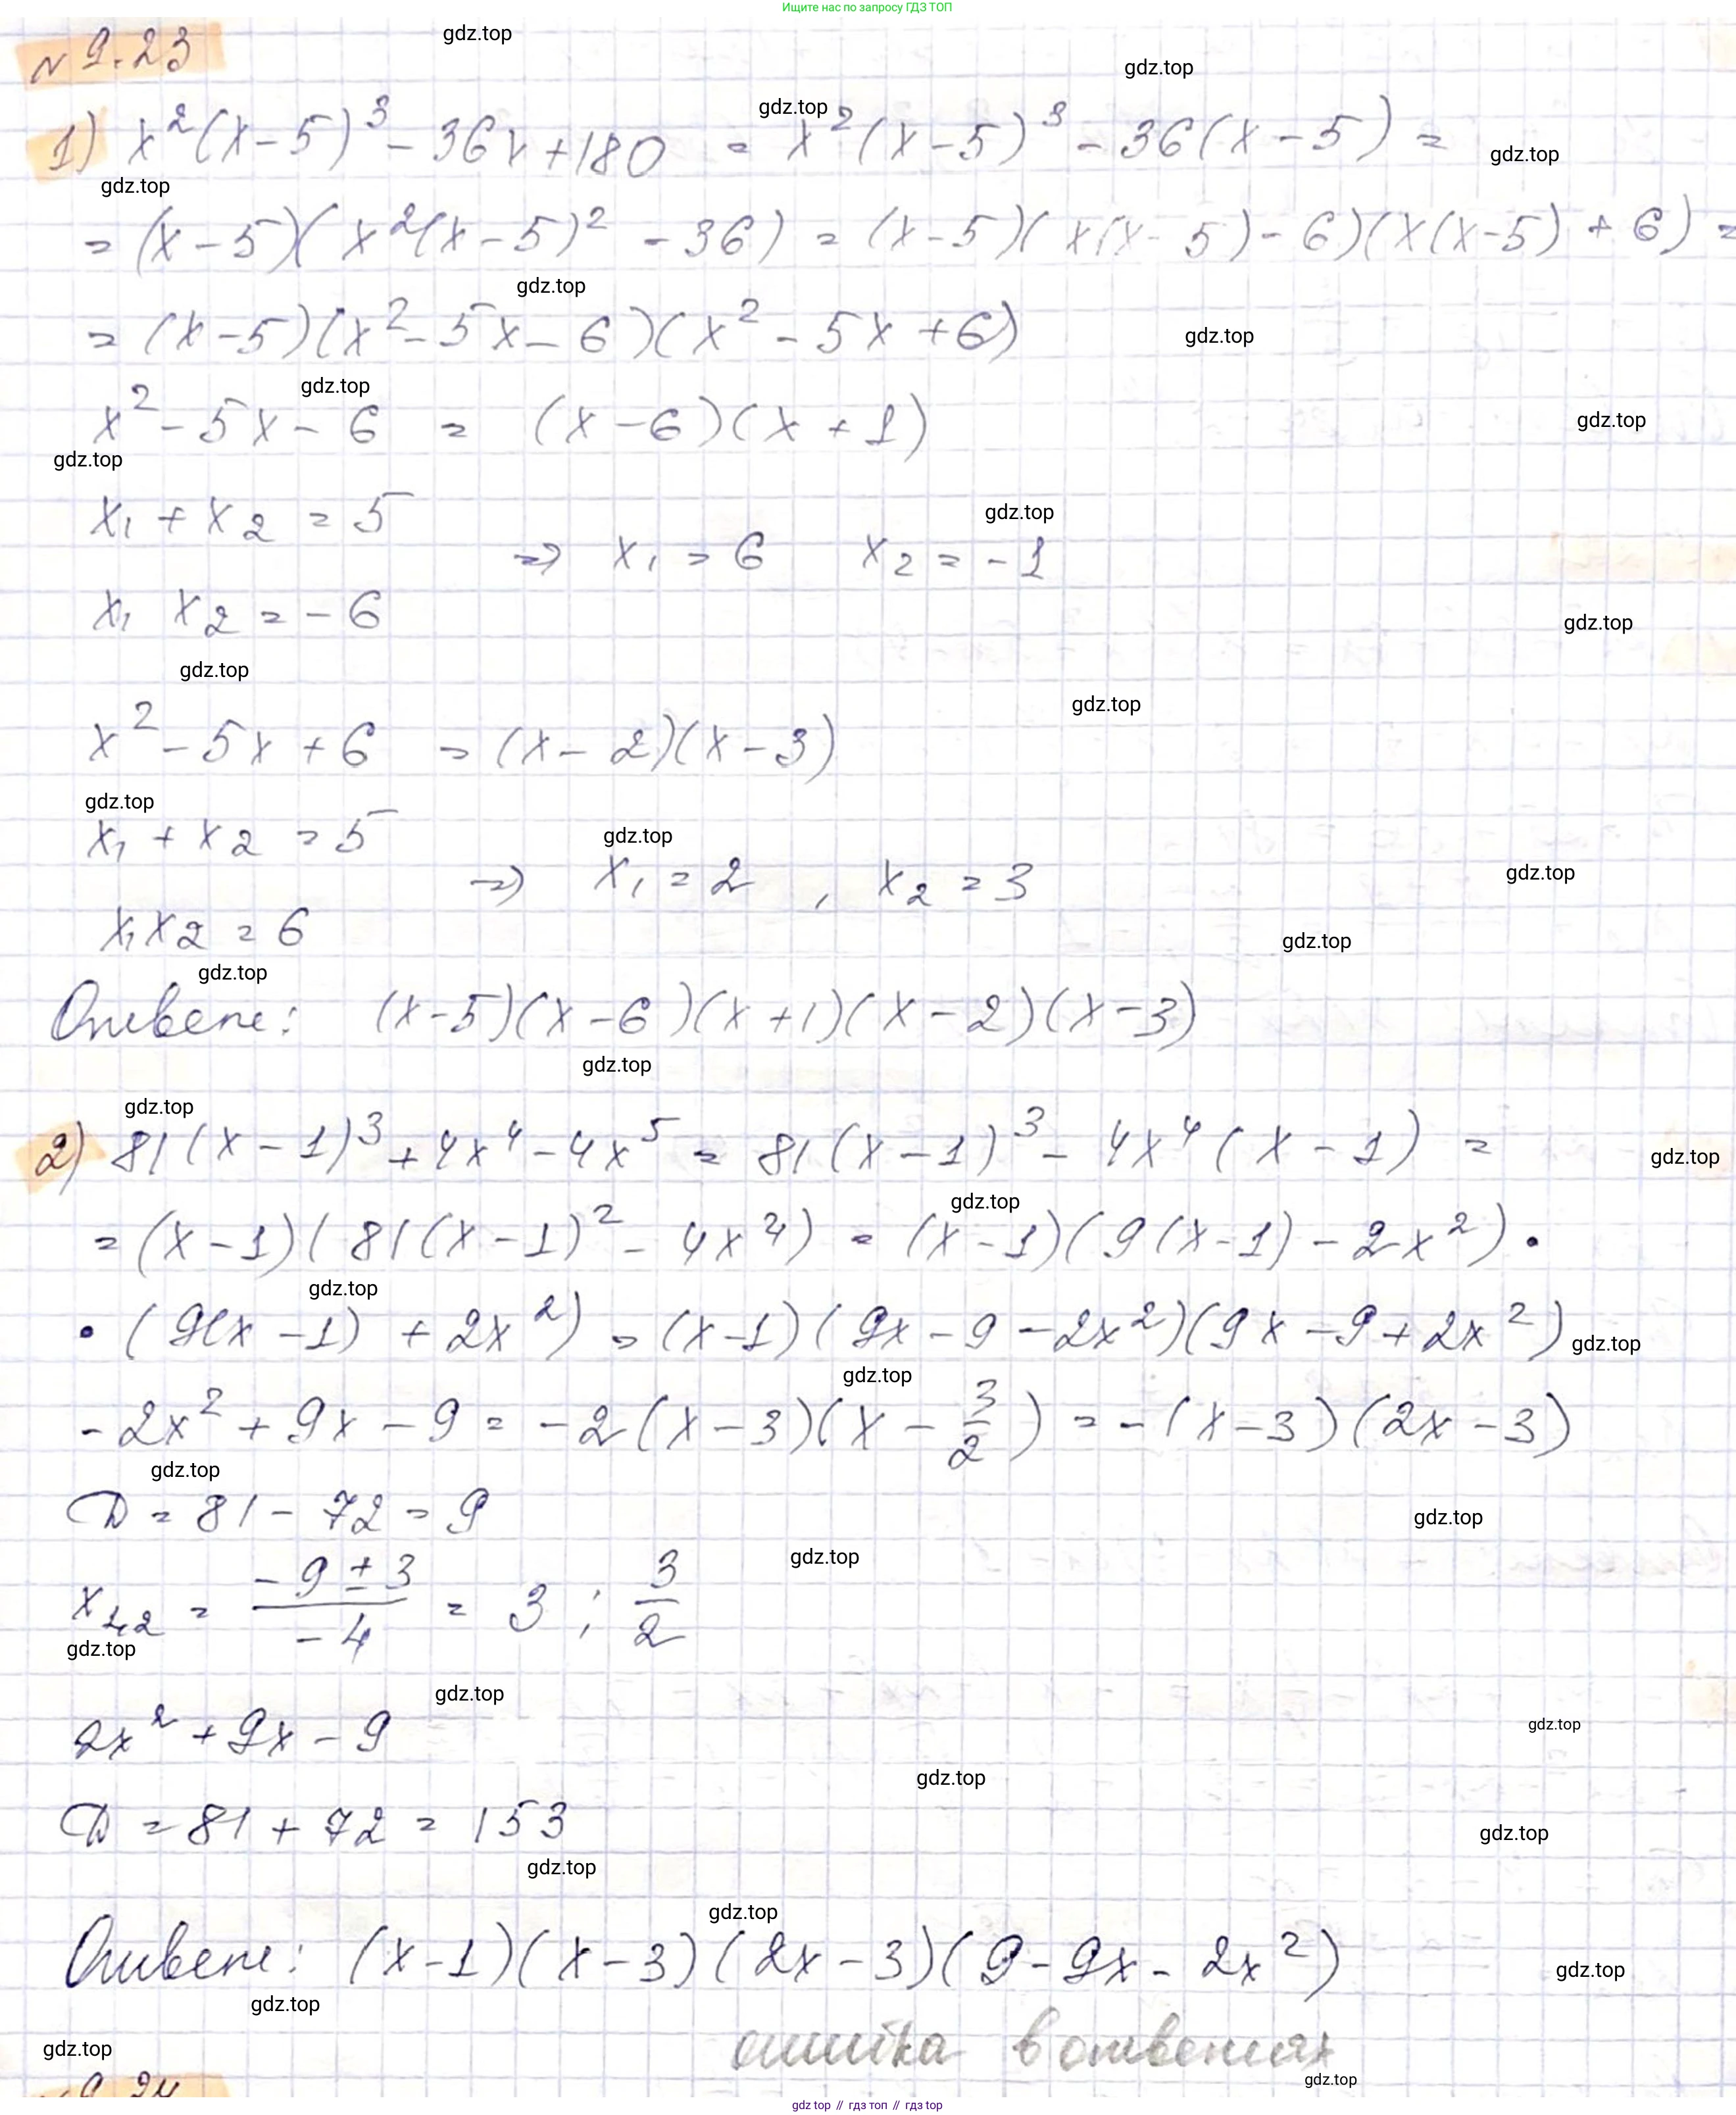 Ищите нас по запросу ГДЗ ТОП
N 9.23
1) x²(x-5)³ - 36x + 180 = x²(x-5)³ - 36(x-5) =
= (x-5)(x²(x-5)² - 36) = (x-5)(x(x-5)-6)(x(x-5)+6) =
= (x-5)(x²-5x-6)(x²-5x+6)
x²-5x-6 = (x-6)(x+1)
x₁ + x₂ = 5
=> x₁ = 6 x₂ = -1
x₁ x₂ = -6
x²-5x+6 = (x-2)(x-3)
x₁ + x₂ = 5
=> x₁ = 2 , x₂ = 3
x₁x₂ = 6
Ответ: (x-5)(x-6)(x+1)(x-2)(x-3)
2) 81(x-1)³ + 4x⁴ - 4x⁵ = 81(x-1)³ - 4x⁴(x-1) =
= (x-1)(81(x-1)² - 4x⁴) = (x-1)(9(x-1)-2x²) •
• (9(x-1) + 2x²) = (x-1)(9x-9-2x²)(9x-9+2x²)
-2x² + 9x - 9 = -2(x-3)(x - 3/2) = -(x-3)(2x-3)
D = 81 - 72 = 9
x₁,₂ = (-9 ± 3)/(-4) = 3 ; 3/2
2x² + 9x - 9
D = 81 + 72 = 153
Ответ: (x-1)(x-3)(2x-3)(9-9x-2x²)
ошибка в ответах
9.24
gdz top // гдз топ // гдз top
gdz.top